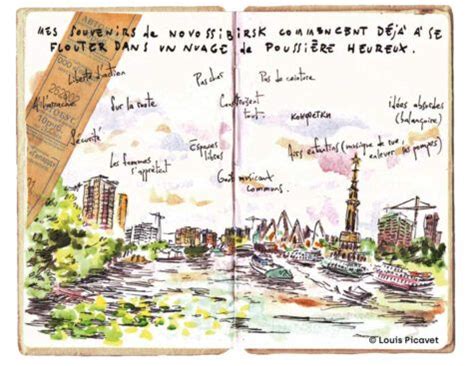 MES SOUVENIRS DE NOVOSSIBIRSK COMMENCENT DÉJÀ À SE
FLOUTER DANS UN NUAGE de POUSSIÈRE HEUREUX.
Liberté d'action
Pas cher
Pas de ceinture
à l'arrache
Sur la route
Construisent
tout
конфетки
idées absurdes
(balançoire)
Sécurité
Les femmes
s'apprêtent
Espaces
libres
Airs enfantins (musique de rue,
enlever ses pompes)
Gouts musicaux
communs.
262802
© Louis Picavet